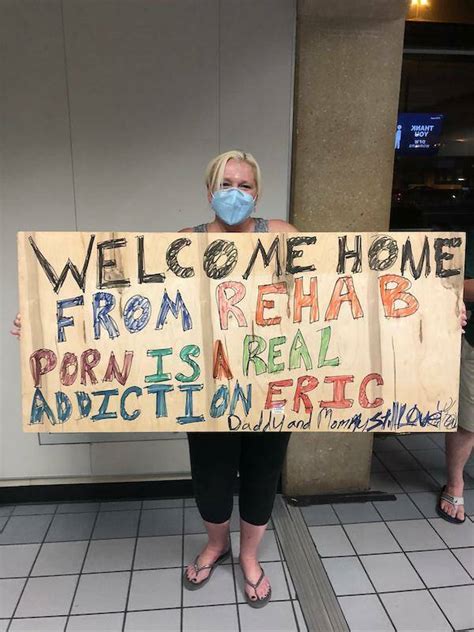 THANK
YOU
WELCOME HOME
FROM REHAB
PORN IS A REAL
ADDICTION ERIC
Daddy and Mommy still Love